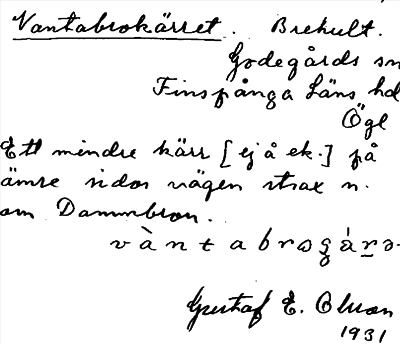 Vantabrokärret. Brekult.
Godegårds sn
Finspånga Läns hd
Ögl
Ett mindre kärr [ej å ek.] på
ömse sidor vägen strax n.
om Dammbron.
Gustaf E. Olson
1931